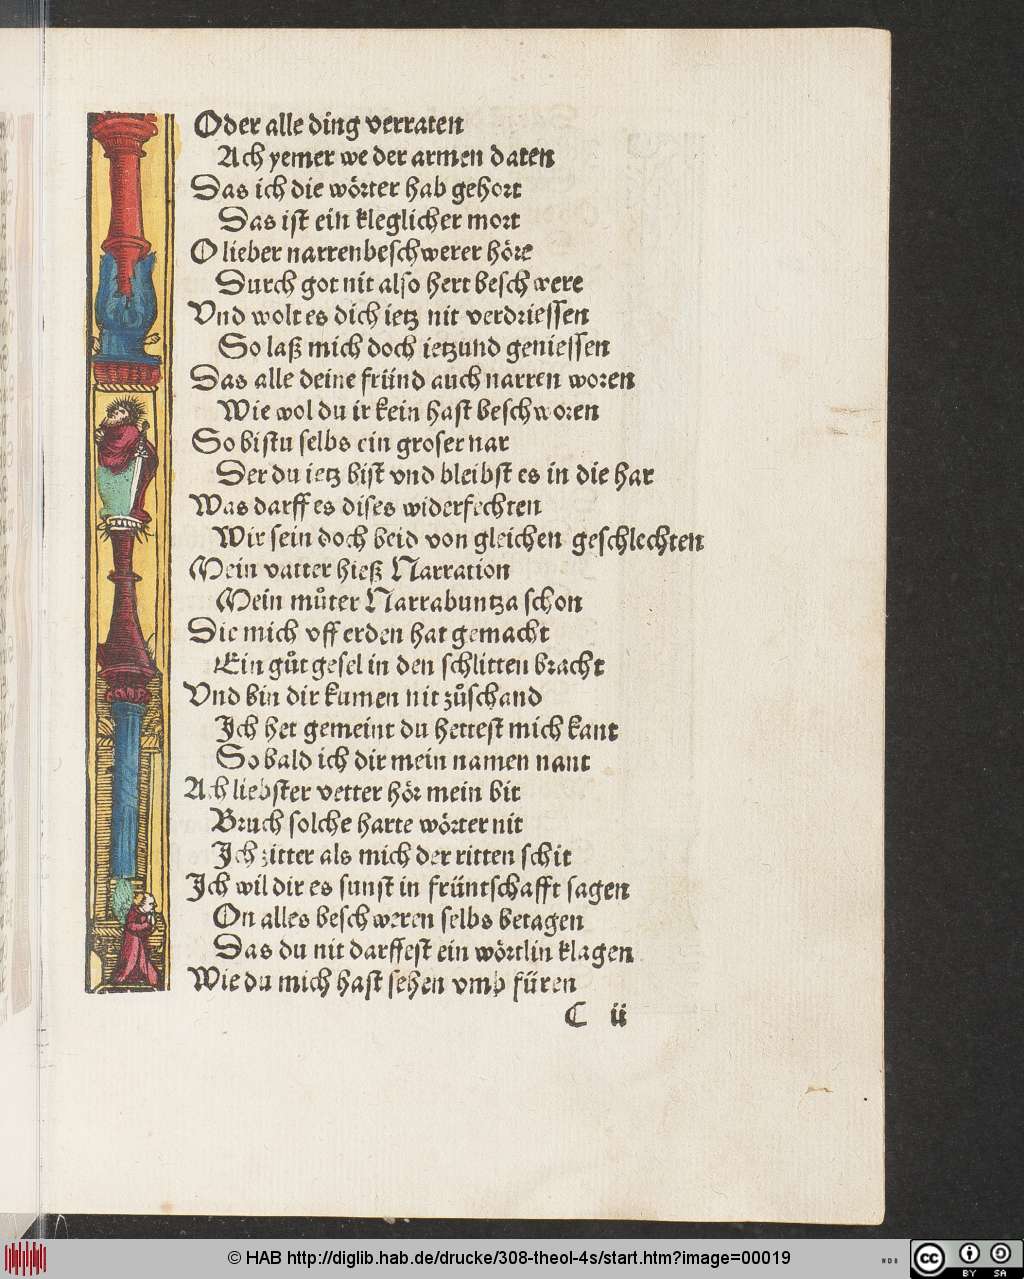 Oder alle ding verraten
Ach yemer we der armen daten
Das ich die wörter hab gehort
Das ist ein kleglicher mort
O lieber narrenbeschwerer höre
Durch got nit also hert beschwere
Vnd wolt es dich ietz nit verdriessen
So laß mich doch ietzund geniessen
Das alle deine fründ auch narren woren
Wie wol du ir kein hast beschworen
So bistu selbs ein groser nar
Der du ietz bist vnd bleibst es in die har
Was darff es dises widerfechten
Wir sein doch beid von gleichen geschlechten
Mein vatter hieß Narration
Mein můter Narrabuntza schon
Die mich vff erden hat gemacht
Ein gůt gesel in den schlitten bracht
Vnd bin dir kumen nit zůschand
Ich het gemeint du hettest mich kant
So bald ich dir mein namen nant
Ach liebster vetter hör mein bit
Bruch solche harte wörter nit
Ich zitter als mich der ritten schit
Ich wil dir es sunst in früntschafft sagen
On alles beschweren selbs betagen
Das du nit darffest ein wörtlin klagen
Wie du mich hast sehen vmb füren
C ii
© HAB http://diglib.hab.de/drucke/308-theol-4s/start.htm?image=00019
WDB
cc BY SA